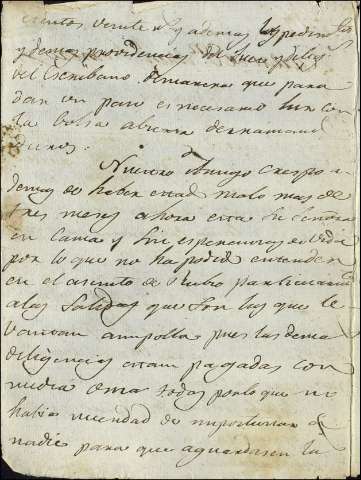 cientos veinte r.s y ademas los pedim.tos
y demas providencias del Juez y dilig.s
del Escribano de manera que para
dar un paso es necesario hir con
la bolsa abierta derramando
Nuestro Amigo Crespo a-
demas de haber estado malo mas de
tres meses ahora esta su señora
en cama y sin esperanzas de vida
por lo que no ha podido entender
en el asunto de Rubio particularm.
a las que son las que le
levantan ampolla pues las demas
diligencias estan pagadas con
todas por lo que no
habia necesidad de importunar a
nadie para que aguardasen la